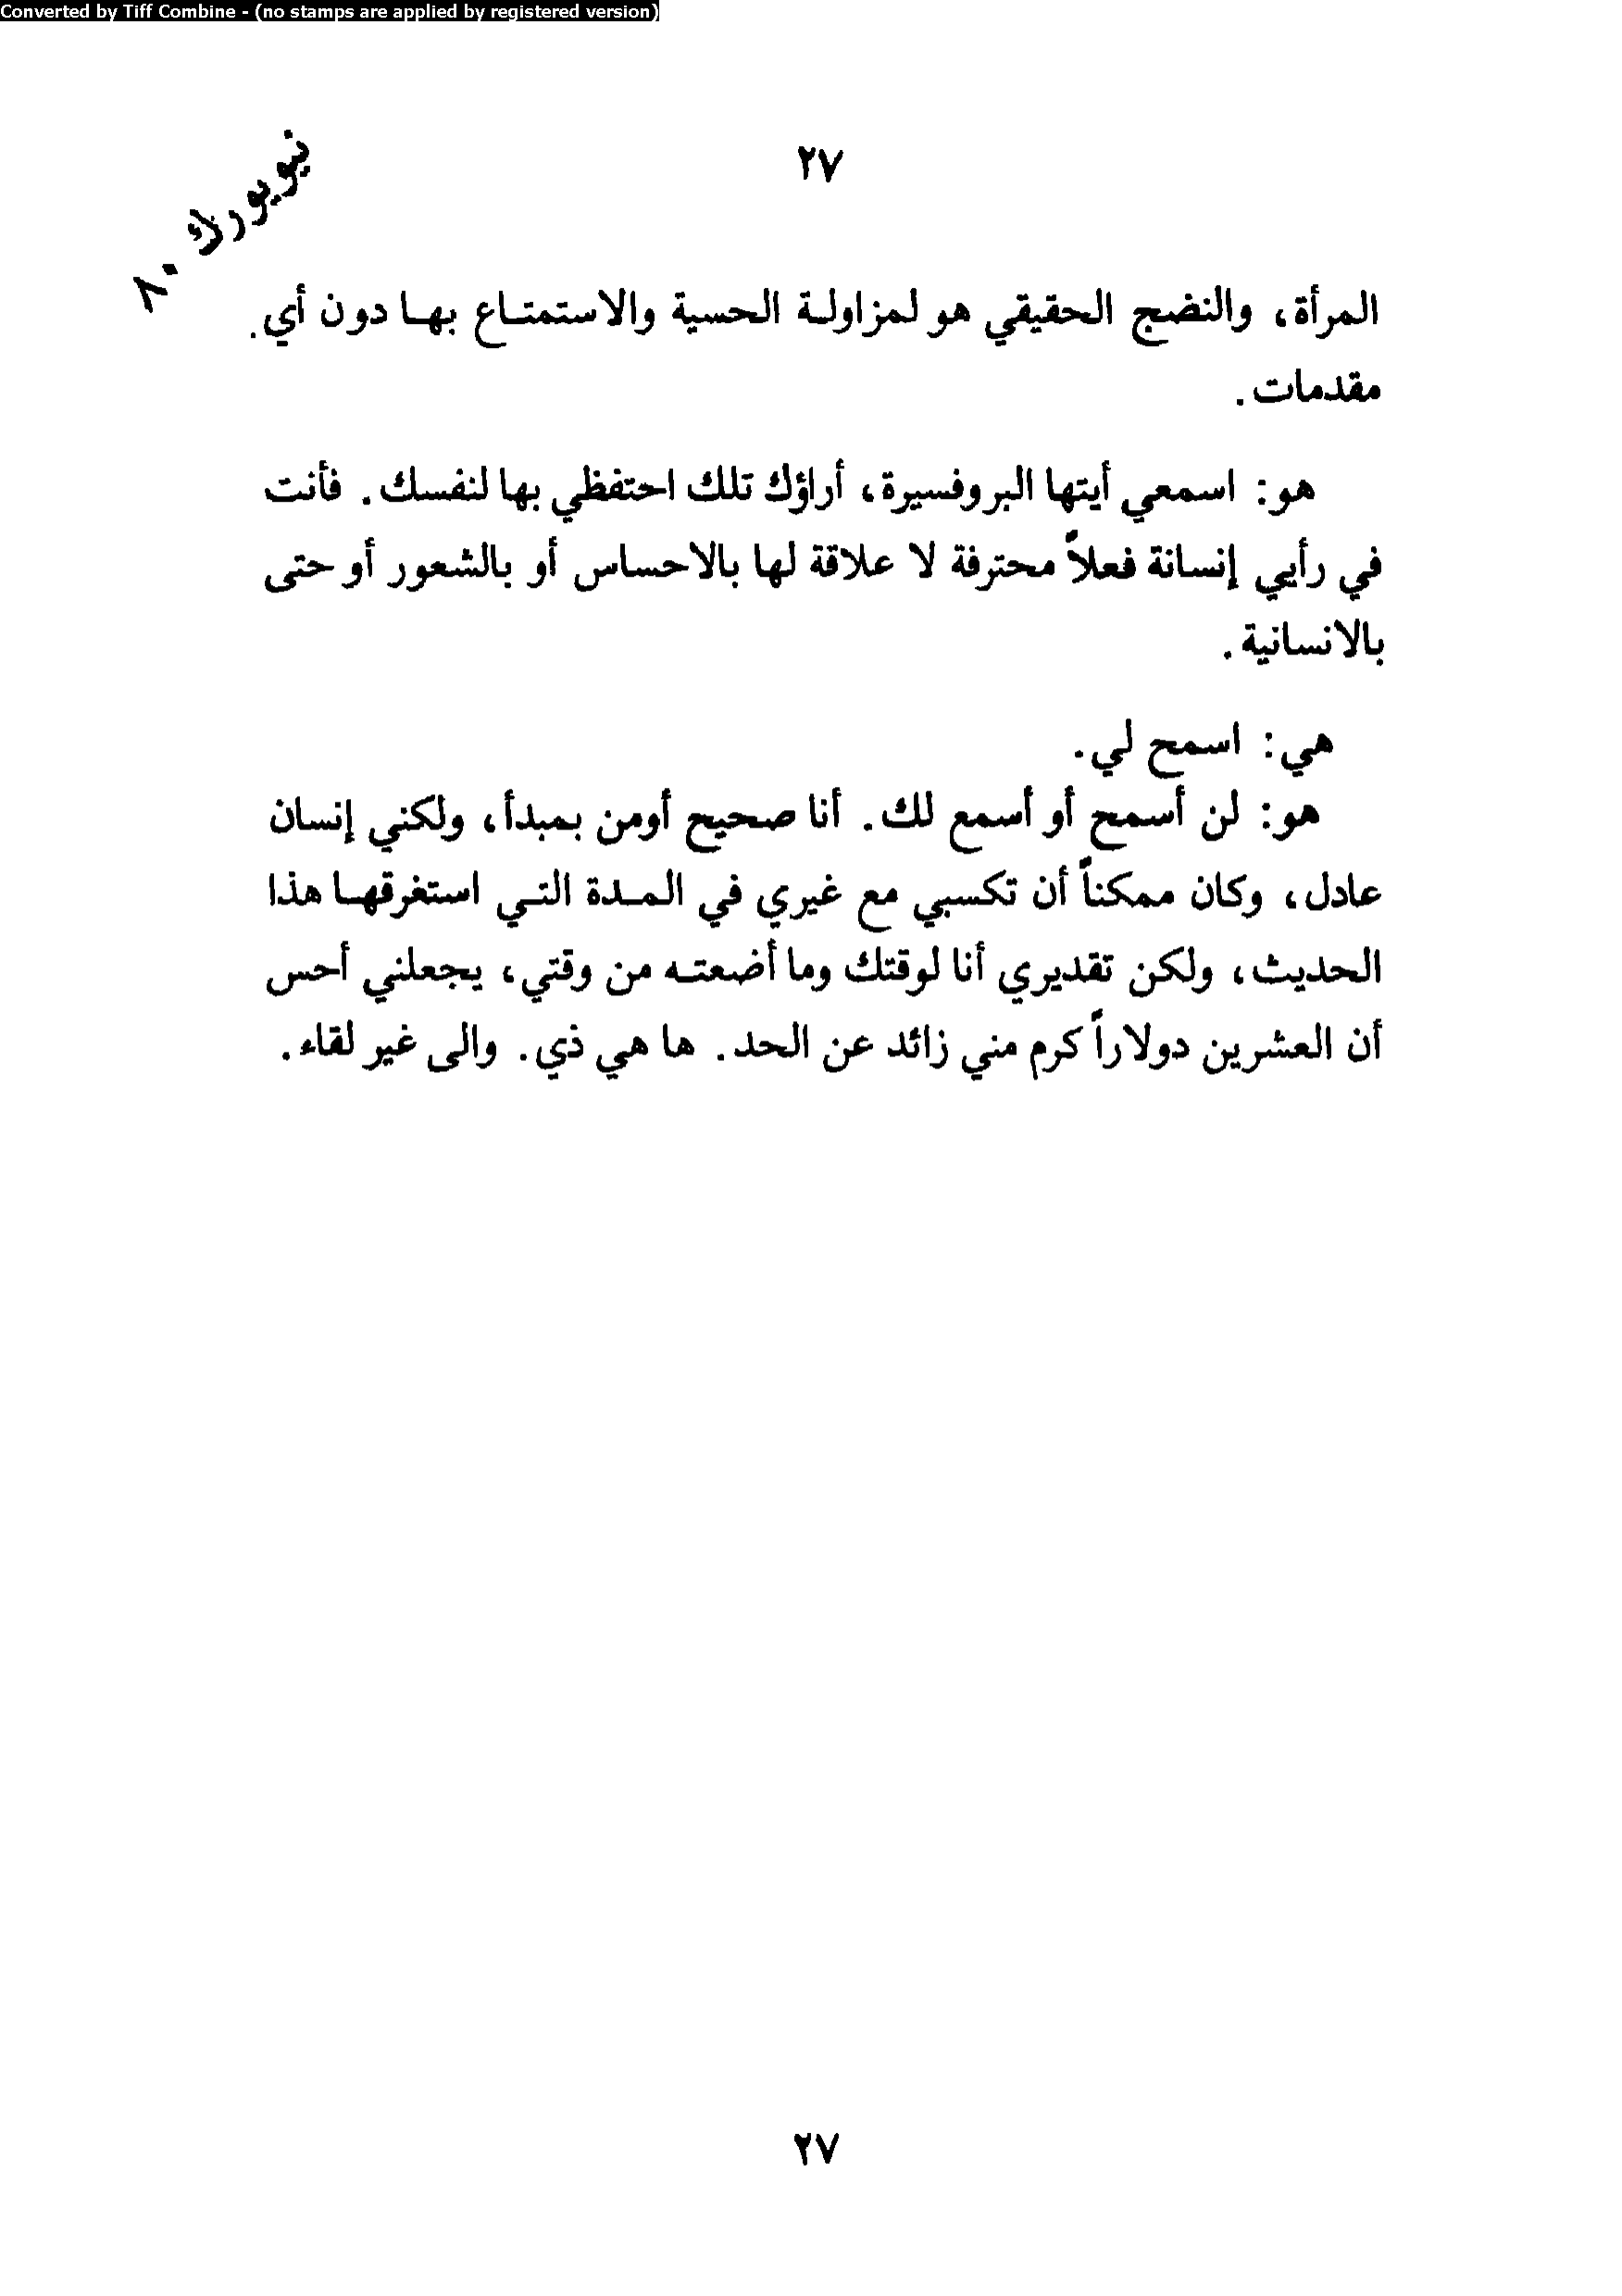 Converted by Tiff Combine - (no stamps are applied by registered version)
نيويورك ٨٠
٢٧
المرأة، والنضج الحقيقي هو لمزاولة الحسية والاستمتاع بها دون أي.
مقدمات.
هو: اسمعي أيتها البروفسيرة، أراؤك تلك احتفظي بها لنفسك. فأنت
في رأيي إنسانة فعلاً محترفة لا علاقة لها بالاحساس أو بالشعور أو حتى
بالانسانية.
هي: اسمح لي.
هو: لن أسمح أو أسمع لك. أنا صحيح أومن بمبدأ، ولكني إنسان
عادل، وكان ممكناً أن تكسبي مع غيري في المدة التي استغرقها هذا
الحديث، ولكن تقديري أنا لوقتك وما أضعته من وقتي، يجعلني أحس
أن العشرين دولاراً كرم مني زائد عن الحد. ها هي ذي. والى غير لقاء.
٢٧